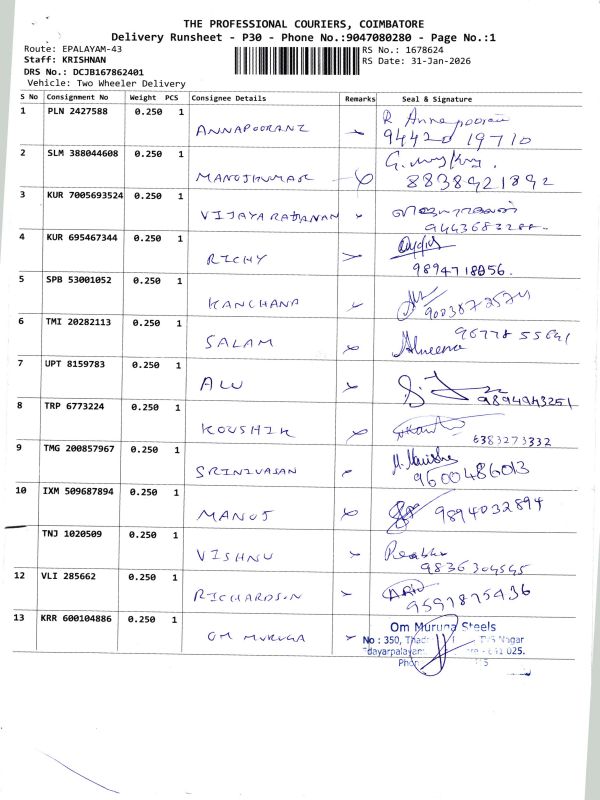 THE PROFESSIONAL COURIERS, COIMBATORE
Delivery Runsheet - P30 - Phone No.:9047080280 - Page No.:1
Route: EPALAYAM-43
RS No.: 1678624
Staff: KRISHNAN
RS Date: 31-Jan-2026
DRS No.: DCJB167862401
Vehicle: Two Wheeler Delivery
S No Consignment No Weight PCS Consignee Details Remarks Seal & Signature
1 PLN 2427588 0.250 1 ANNAPOORANI R Annapoorani
94420 19710
2 SLM 388044608 0.250 1 MANOJKUMAR
8838921892
3 KUR 7005693524 0.250 1 VIJAYARAJANAN
4 KUR 695467344 0.250 1 RICHY
9894718856.
5 SPB 53001052 0.250 1 KANCHANA
6 TMI 20282113 0.250 1 SALAM
7 UPT 8159783 0.250 1 ALU
9894943251
8 TRP 6773224 0.250 1 KOUSHIK
6383273332
9 TMG 200857967 0.250 1 SRINIVASAN
9600486013
10 IXM 509687894 0.250 1 MANOJ 9894032894
TNJ 1020509 0.250 1 VISHNU
9836304545
12 VLI 285662 0.250 1 RICHARDSON
9597875436
13 KRR 600104886 0.250 1 OM MURUGA
Om Muruga Steels
No : 350, TVS Nagar